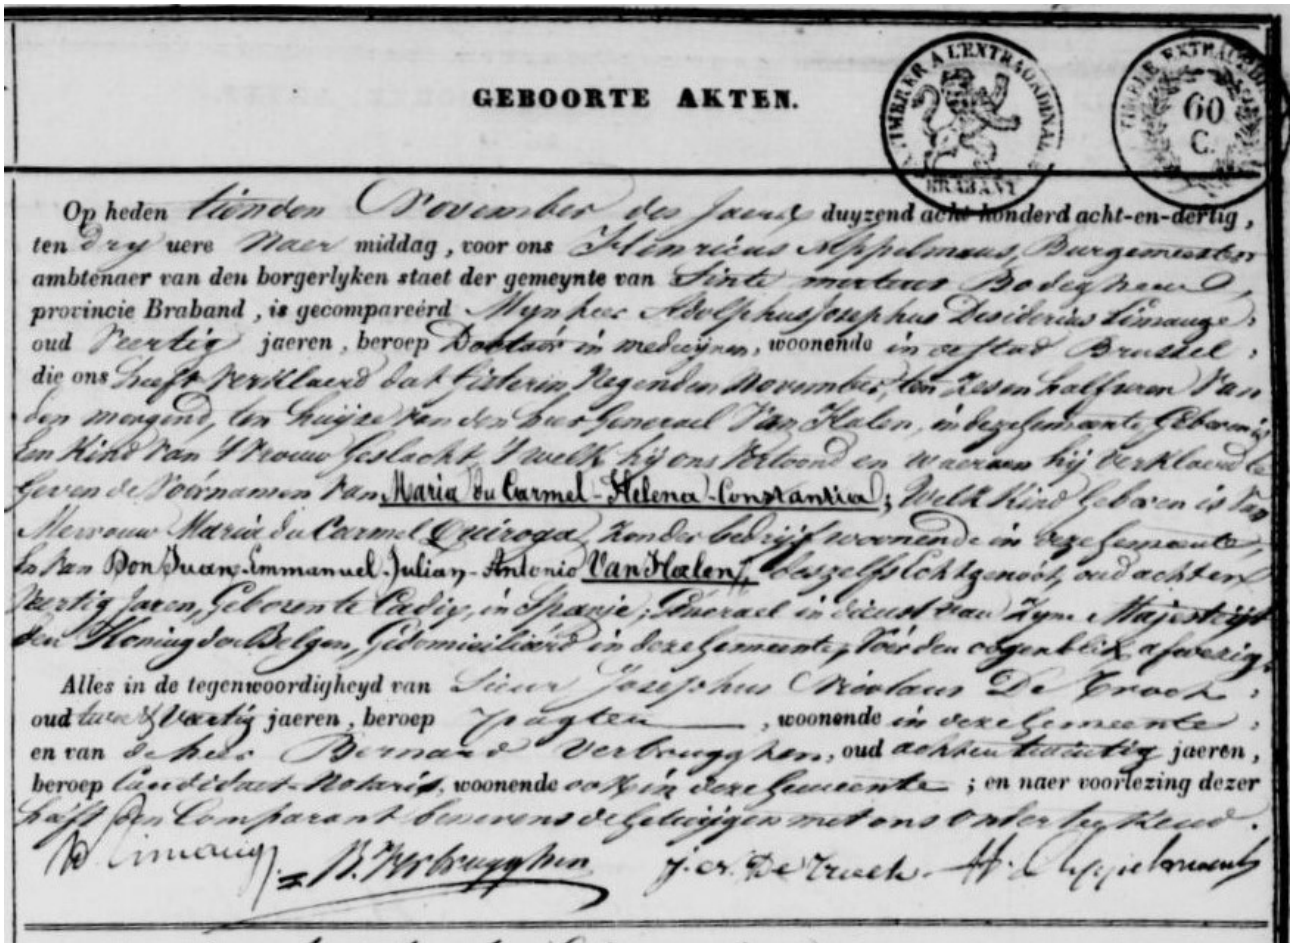 GEBOORTE AKTEN.
TIMBRE A L'EXTRAORDINAIRE
BRABANT
TIMBRE EXTRAORDIN
60
C.
Op heden tienden November des Jaers duyzend acht honderd acht-en-dertig,
ten dry uere Naer middag, voor ons Henricus Appelmans, Burgemeester
ambtenaer van den borgerlyken staet der gemeynte van Sinte Bodeghem,
provincie Braband, is gecompareérd Mynheer Adolphus Josephus Desiderius Limauge,
oud Veertig jaeren, beroep Doctoor in medecynen, woonende in de stad Brussel,
die ons heeft verklaerd dat Gisteren, Negenden November, ten zes en half uren Van
den morgend, ten huyze van den heer Generael Van Halen, in deze Gemeente Geboren is
Een Kind van 't Vrouw Geslacht, 't welk hij ons vertoond en waeraen hij verklaerd te
Geven de Voornamen Van Maria du Carmel-Helena-Constantia; Welk Kind geboren is Van
Mevrouw Maria du Carmel Quiroga, zonder bedrijf woonende in deze Gemeente,
En Van Don Juan-Immanuel-Julian-Antonio Van Halen, deszelfs Echtgenoot, oud acht en
Veertig Jaren, Geboren te Cadiz, in Spanje, Generael in dienst van Zyne Majestijt
den Koning der Belgen, Gedomicilieerd in deze Gemeente, Voor den oogenblik afwezig.
Alles in de tegenwoordigheyd van Sieur Josephus Nicolaus De Troch,
oud twee & Veertig jaeren, beroep Pagter, woonende in deze Gemeente,
en van de heer Bernard Verbrugghen, oud acht en twintig jaeren,
beroep Candidaet-Notaris, woonende ook in deze Gemeente; en naer voorlezing dezer
heeft den Comparant benevens de Getuijgen met ons onderteekend.
Limauge B. Verbrugghen J. N. De Troch H. Appelmans